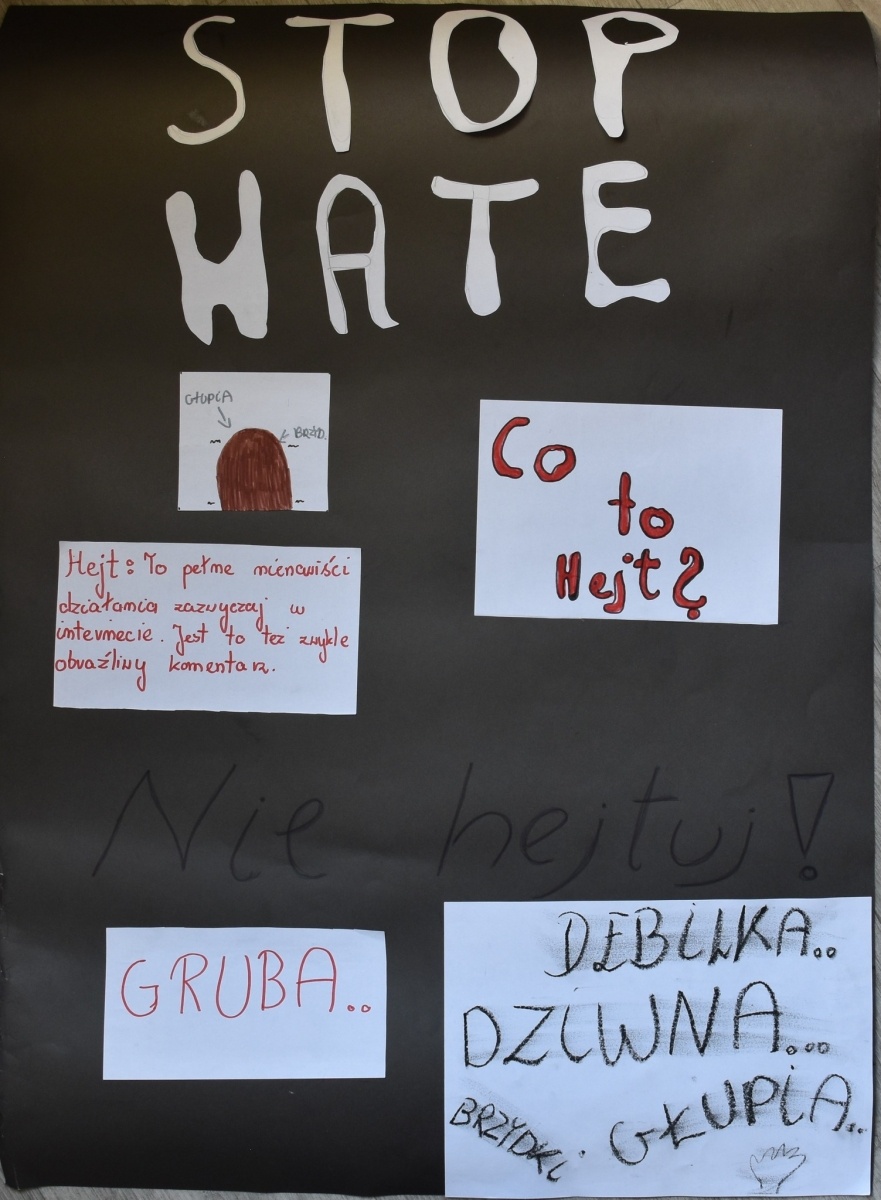 STOP
HATE
GŁUPIA
BRZYD.
Co
to
Hejt?
Hejt: To pełne nienawiści
działania zazwyczaj w
internecie. Jest to też zwykle
obraźliwy komentarz.
Nie hejtuj!
GRUBA..
DEBILKA..
DZIWNA...
GŁUPIA..